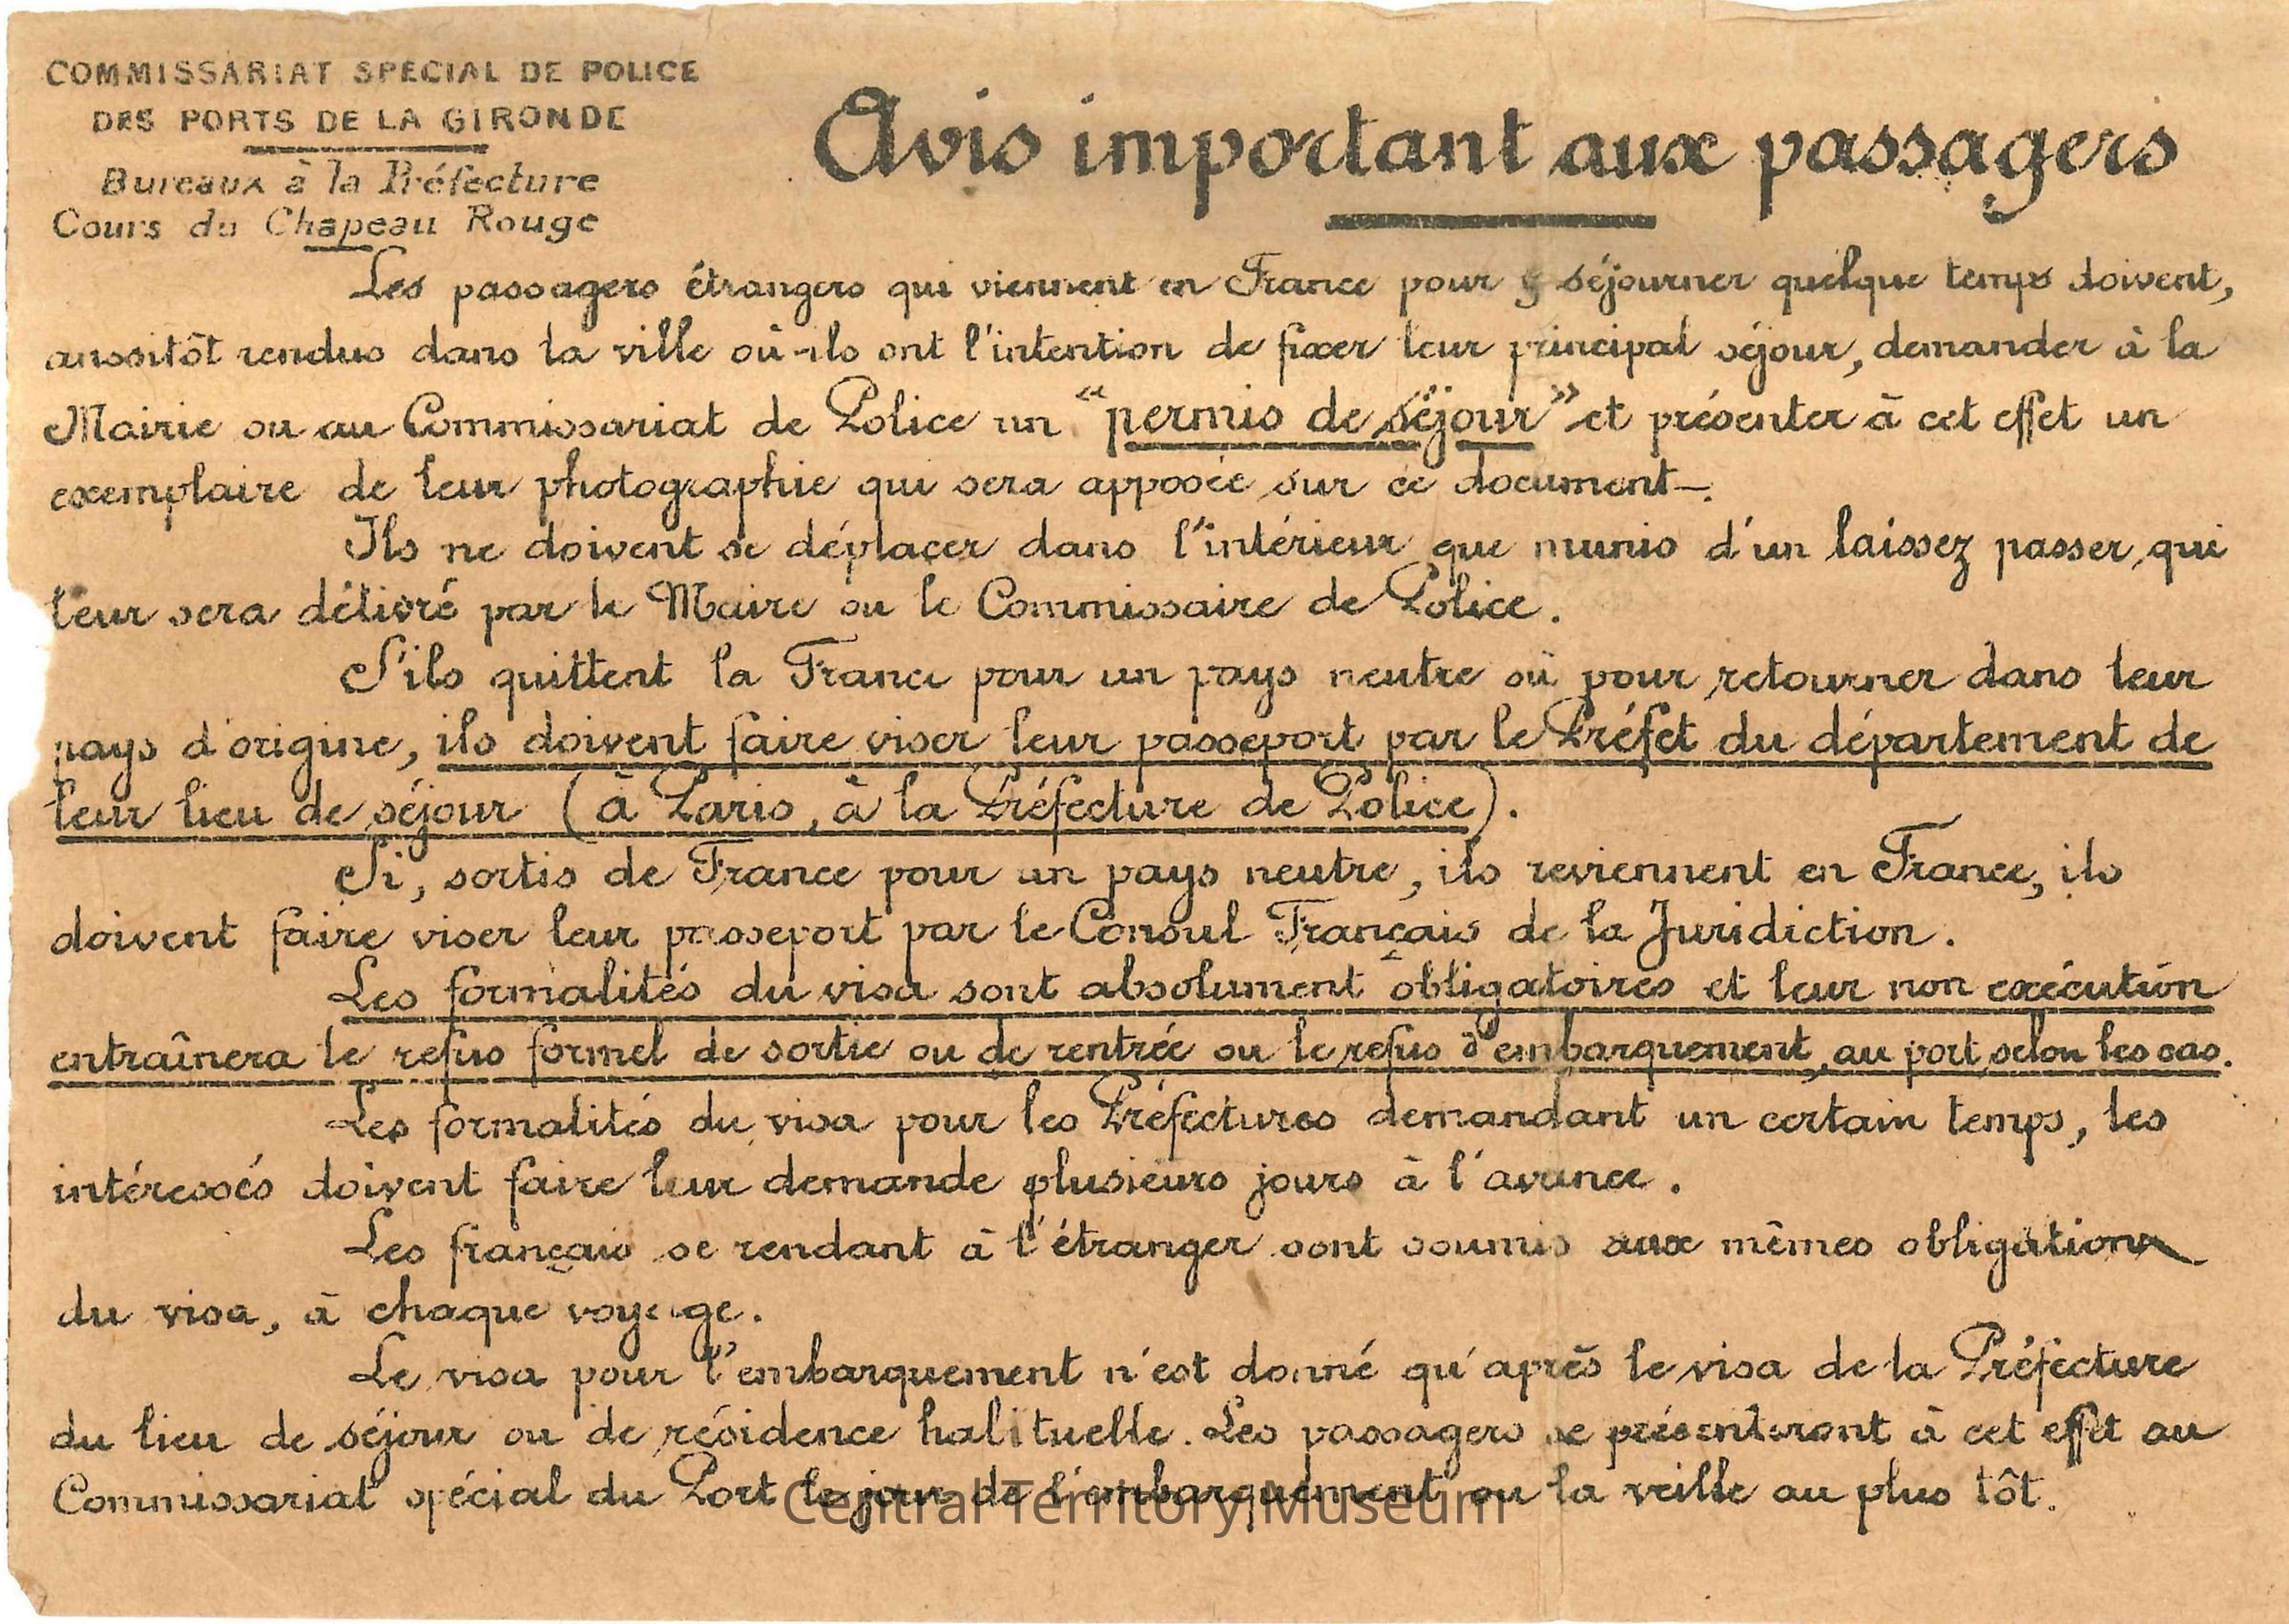 COMMISSARIAT SPECIAL DE POLICE
DES PORTS DE LA GIRONDE
Bureaux à la Préfecture
Cours du Chapeau Rouge
Avis important aux passagers
Les passagers étrangers qui viennent en France pour y séjourner quelque temps doivent,
aussitôt rendus dans la ville où ils ont l'intention de fixer leur principal séjour, demander à la
Mairie ou au Commissariat de Police un "permis de séjour" et présenter à cet effet un
exemplaire de leur photographie qui sera apposée sur ce document-.
Ils ne doivent se déplacer dans l'intérieur que munis d'un laissez passer, qui
leur sera délivré par le Maire ou le Commissaire de Police.
S'ils quittent la France pour un pays neutre ou pour retourner dans leur
pays d'origine, ils doivent faire viser leur passeport par le Préfet du département de
leur lieu de séjour (à Paris, à la Préfecture de Police).
Si, sortis de France pour un pays neutre, ils reviennent en France, ils
doivent faire viser leur passeport par le Consul Français de la Juridiction.
Les formalités du visa sont absolument obligatoires et leur non exécution
entraînera le refus formel de sortie ou de rentrée ou le refus d'embarquement, au port, selon les cas.
Les formalités du visa pour les Préfectures demandant un certain temps, les
intéressés doivent faire leur demande plusieurs jours à l'avance.
Les français se rendant à l'étranger sont soumis aux mêmes obligations
du visa, à chaque voyage.
Le visa pour l'embarquement n'est donné qu'après le visa de la Préfecture
du lieu de séjour ou de résidence habituelle. Les passagers se présenteront à cet effet au
Commissariat spécial du Port le jour de l'embarquement ou la veille au plus tôt.
Central Territory Museum